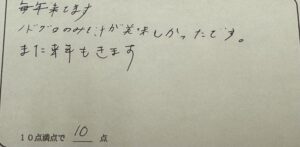 毎年来てます
ノドグロのみそ汁が美味しかったです。
また来年もきます
10点満点で 10 点